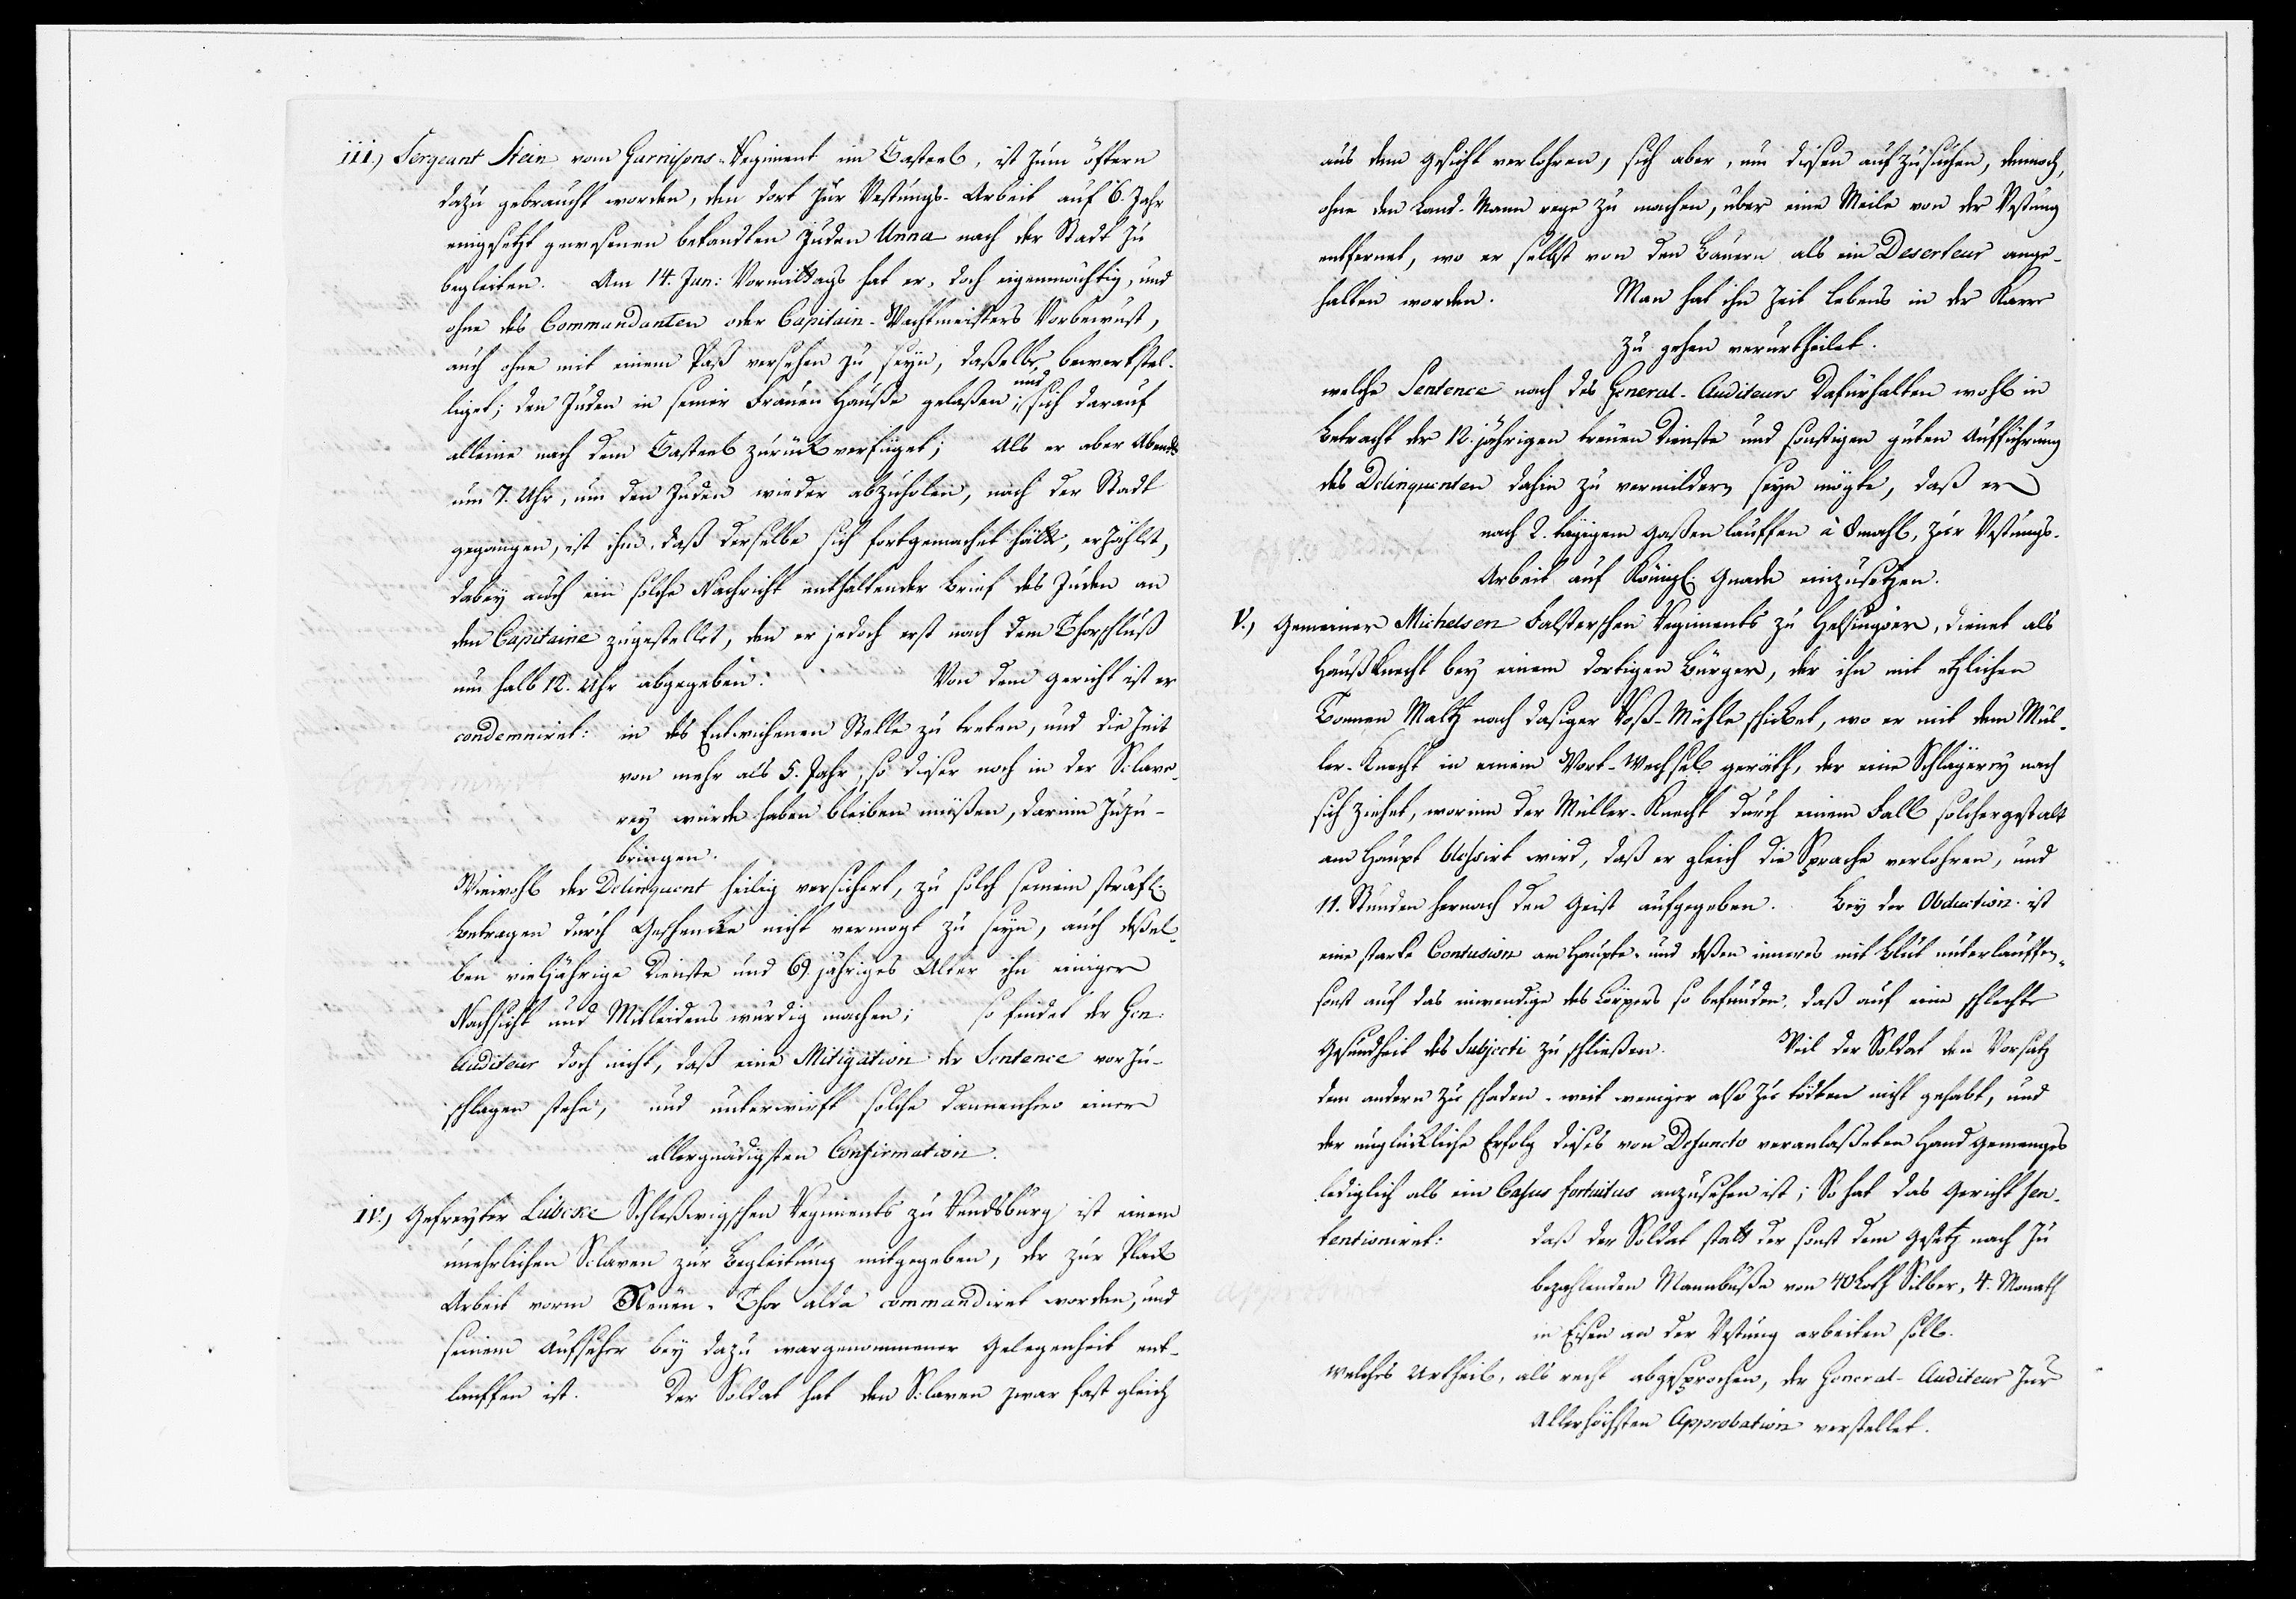 iii.) Sergeant Stein vom Garnisons-Regiment im Casteel, ist zum öftern
dazu gebraucht worden, den dort zur Vestungs-Arbeit auf 6. Jahr
eingesetzt gewesenen bekandten Juden Unna nach der Stadt zu
begleiten. Am 14. Jun: Vormittags hat er, doch eigenmächtig, und
ohne des Commandanten oder Capitain-Wachtmeisters Vorbewust,
auch ohne mit einem Paß versehen zu seyn, daßelbe bewerkstel-
liget; den Juden in seiner Frauen Hauße gelaßen; und sich darauf
alleine nach dem Casteel zurück verfüget; Als er aber Abends
um 7. Uhr, um den Juden wieder abzuholen, nach der Stadt
gegangen, ist ihm, daß derselbe sich fortgemachet hätte, erzählt,
dabey auch ein solche Nachricht enthaltender Brief des Juden an
den Capitaine zugestellet, den er jedoch erst nach dem Thorschluß
um halb 12. Uhr abgegeben. Von dem Gericht ist er
condemniret: in des Entwichenen Stelle zu treten, und die Zeit
von mehr als 5. Jahr, so dieser noch in der Sclave-
rey würde haben bleiben müßen, darinn zuzu-
bringen.
Wiewohl der Delinquent heilig versichert, zu solch seinem sträfl:
Betragen durch Geschencke nicht vermogt zu seyn, auch deßel-
ben vieljährige Dienste und 69. jähriges Alter ihn einiger
Nachsicht und Mitleidens würdig machen; so findet der Gen:
Auditeur doch nicht, daß eine Mitigation der Sentence vorzu-
schlagen stehe, und unterwirft solche dannenhero einer
allergnädigsten Confirmation.
iv.) Gefreyter Lübcke Schleßwigschen Regiments zu Rendsburg ist einem
unehrlichen Sclaven zur Begleitung mitgegeben, der zur Plack
Arbeit vorm Neuen-Thor alda commandiret worden, und
seinem Aufseher bey dazu wargenommener Gelegenheit ent-
lauffen ist. Der Soldat hat den Sclaven zwar fast gleich
aus dem Gesicht verlohren, sich aber, um diesen aufzusuchen, dennoch,
ohne den Land-Mann rege zu machen, über eine Meile von der Vestung
entfernet, wo er selbst von den Bauern als ein Deserteur ange-
halten worden. Man hat ihn Zeit Lebens in der Karre
zu gehen verurtheilet.
welche Sentence nach des General-Auditeurs Dafürhalten wohl in
Betracht der 12. jährigen treuen Dienste und sonstigen guten Aufführung
des Delinquenten dahin zu vermildern seyn mögte, daß er
nach 2. tägigem Gaßenlauffen à 8 mahl, zur Vestungs-
Arbeit auf Königl: Gnade einzusetzen.
V.) Gemeiner Michelsen Falsterschen Regiments zu Helsingöer, dienet als
Haußknecht bey einem dortigen Bürger, der ihn mit etzlichen
Tonnen Maltz nach dasiger Roß-Mühle schicket, wo er mit dem Mül-
ler-Knecht in einem Wort-Wechsel geräth, der eine Schlägerey nach
sich ziehet, worinn der Müller-Knecht durch einem Fall solchergestalt
am Haupt blessirt wird, daß er gleich die Sprache verlohren, und
11. Stunden hernach den Geist aufgegeben. Bey der Obduction ist
eine starke Contusion am Haupte, und deßen inneres mit Blut unterlauffen,
sonst auch das inwendige des Cörpers so befunden, daß auf eine schlechte
Gesundheit des Subjecti zu schließen. Weil der Soldat den Vorsatz
dem andern zu schaden, weit weniger also zu tödten nicht gehabt, und
der unglückliche Erfolg dieses von Defuncto veranlaßeten Hand Gemenges
lediglich als ein Casus fortuitus anzusehen ist; So hat das Gericht sen-
tentioniret: daß der Soldat statt der sonst dem Gesetz nach zu
bezahlenden Mannbuße von 40 Loth Silber, 4. Monath
in Eisen an der Vestung arbeiten soll.
welches Urtheil, als recht abgesprochen, der General-Auditeur zur
Allerhöchsten Approbation verstellet.